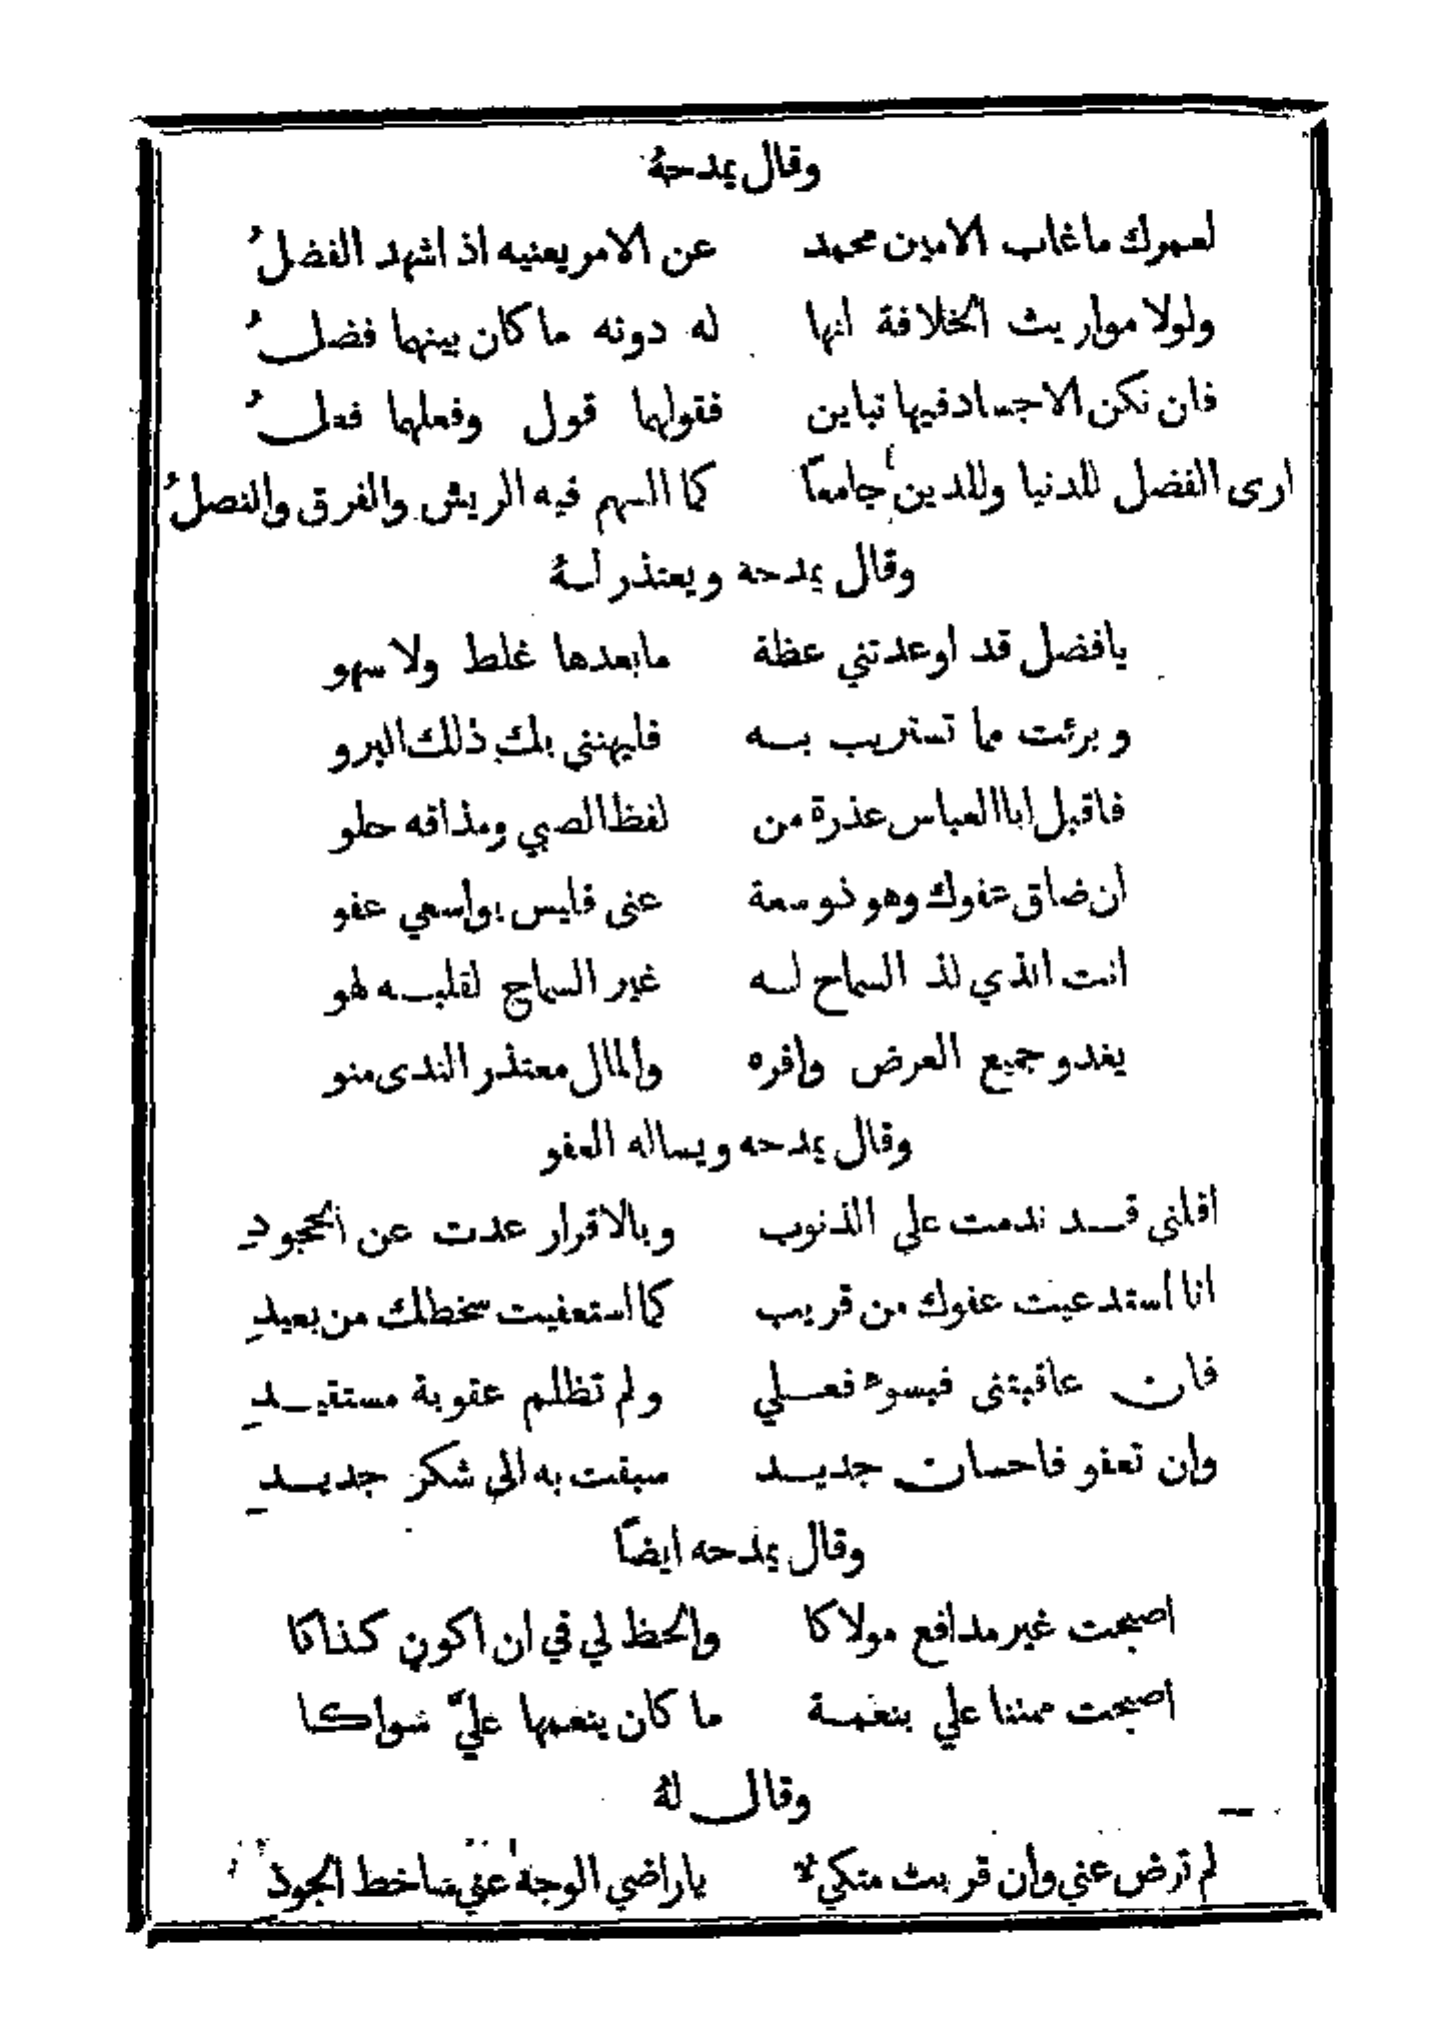 وقال يمدحهُ
لعمرك ما غاب الامين محمد عن الامر يعنيه اذ اشهد الفضلُ
ولولا مواريث الخلافة انها له دونه ما كان بينهما فضلُ
فان تكن الاجساد فيها تباين فقولهما قول وفعلهما فعلُ
ارى الفضل للدنيا وللدين جامعاً كما السهم فيه الريش والفرق والنصلُ
وقال يمدحه ويعتذر لهُ
يا فضل قد اوعدتني عظة ما بعدها غلط ولا سهو
وبرئت مما تستريب به فليهنني بك ذلك البرو
فاقبل ابا العباس عذرة من لفظ الصبي ومذاقه حلو
ان ضاق عفوك وهو ذو سعة عنى فليس بواسعي عفو
انت الذي لذ السماح له غير السماح لقلبه لهو
يغدو جميع العرض وافره والمال معتذر الندى منو
وقال يمدحه ويساله العفو
اقلني قد ندمت علي الذنوب وبالاقرار عدت عن الججودِ
انا استدعيت عفوك من قريب كما استعفيت سخطك من بعيدِ
فان عاقبتنى فبسوء فعلي ولم تظلم عقوبة مستقيدِ
وان تعفو فاحسان جديد سبقت به الي شكر جديدِ
وقال يمدحه ايضاً
اصبحت غير مدافع مولاكا والحظ لي في ان اكون كذاكا
اصبحت ممتنا علي بنعمة ما كان ينعمها عليّ سواكا
وقال لهُ
لم ترض عني وان قربت متكيء يا راضي الوجه عني ساخط الجود